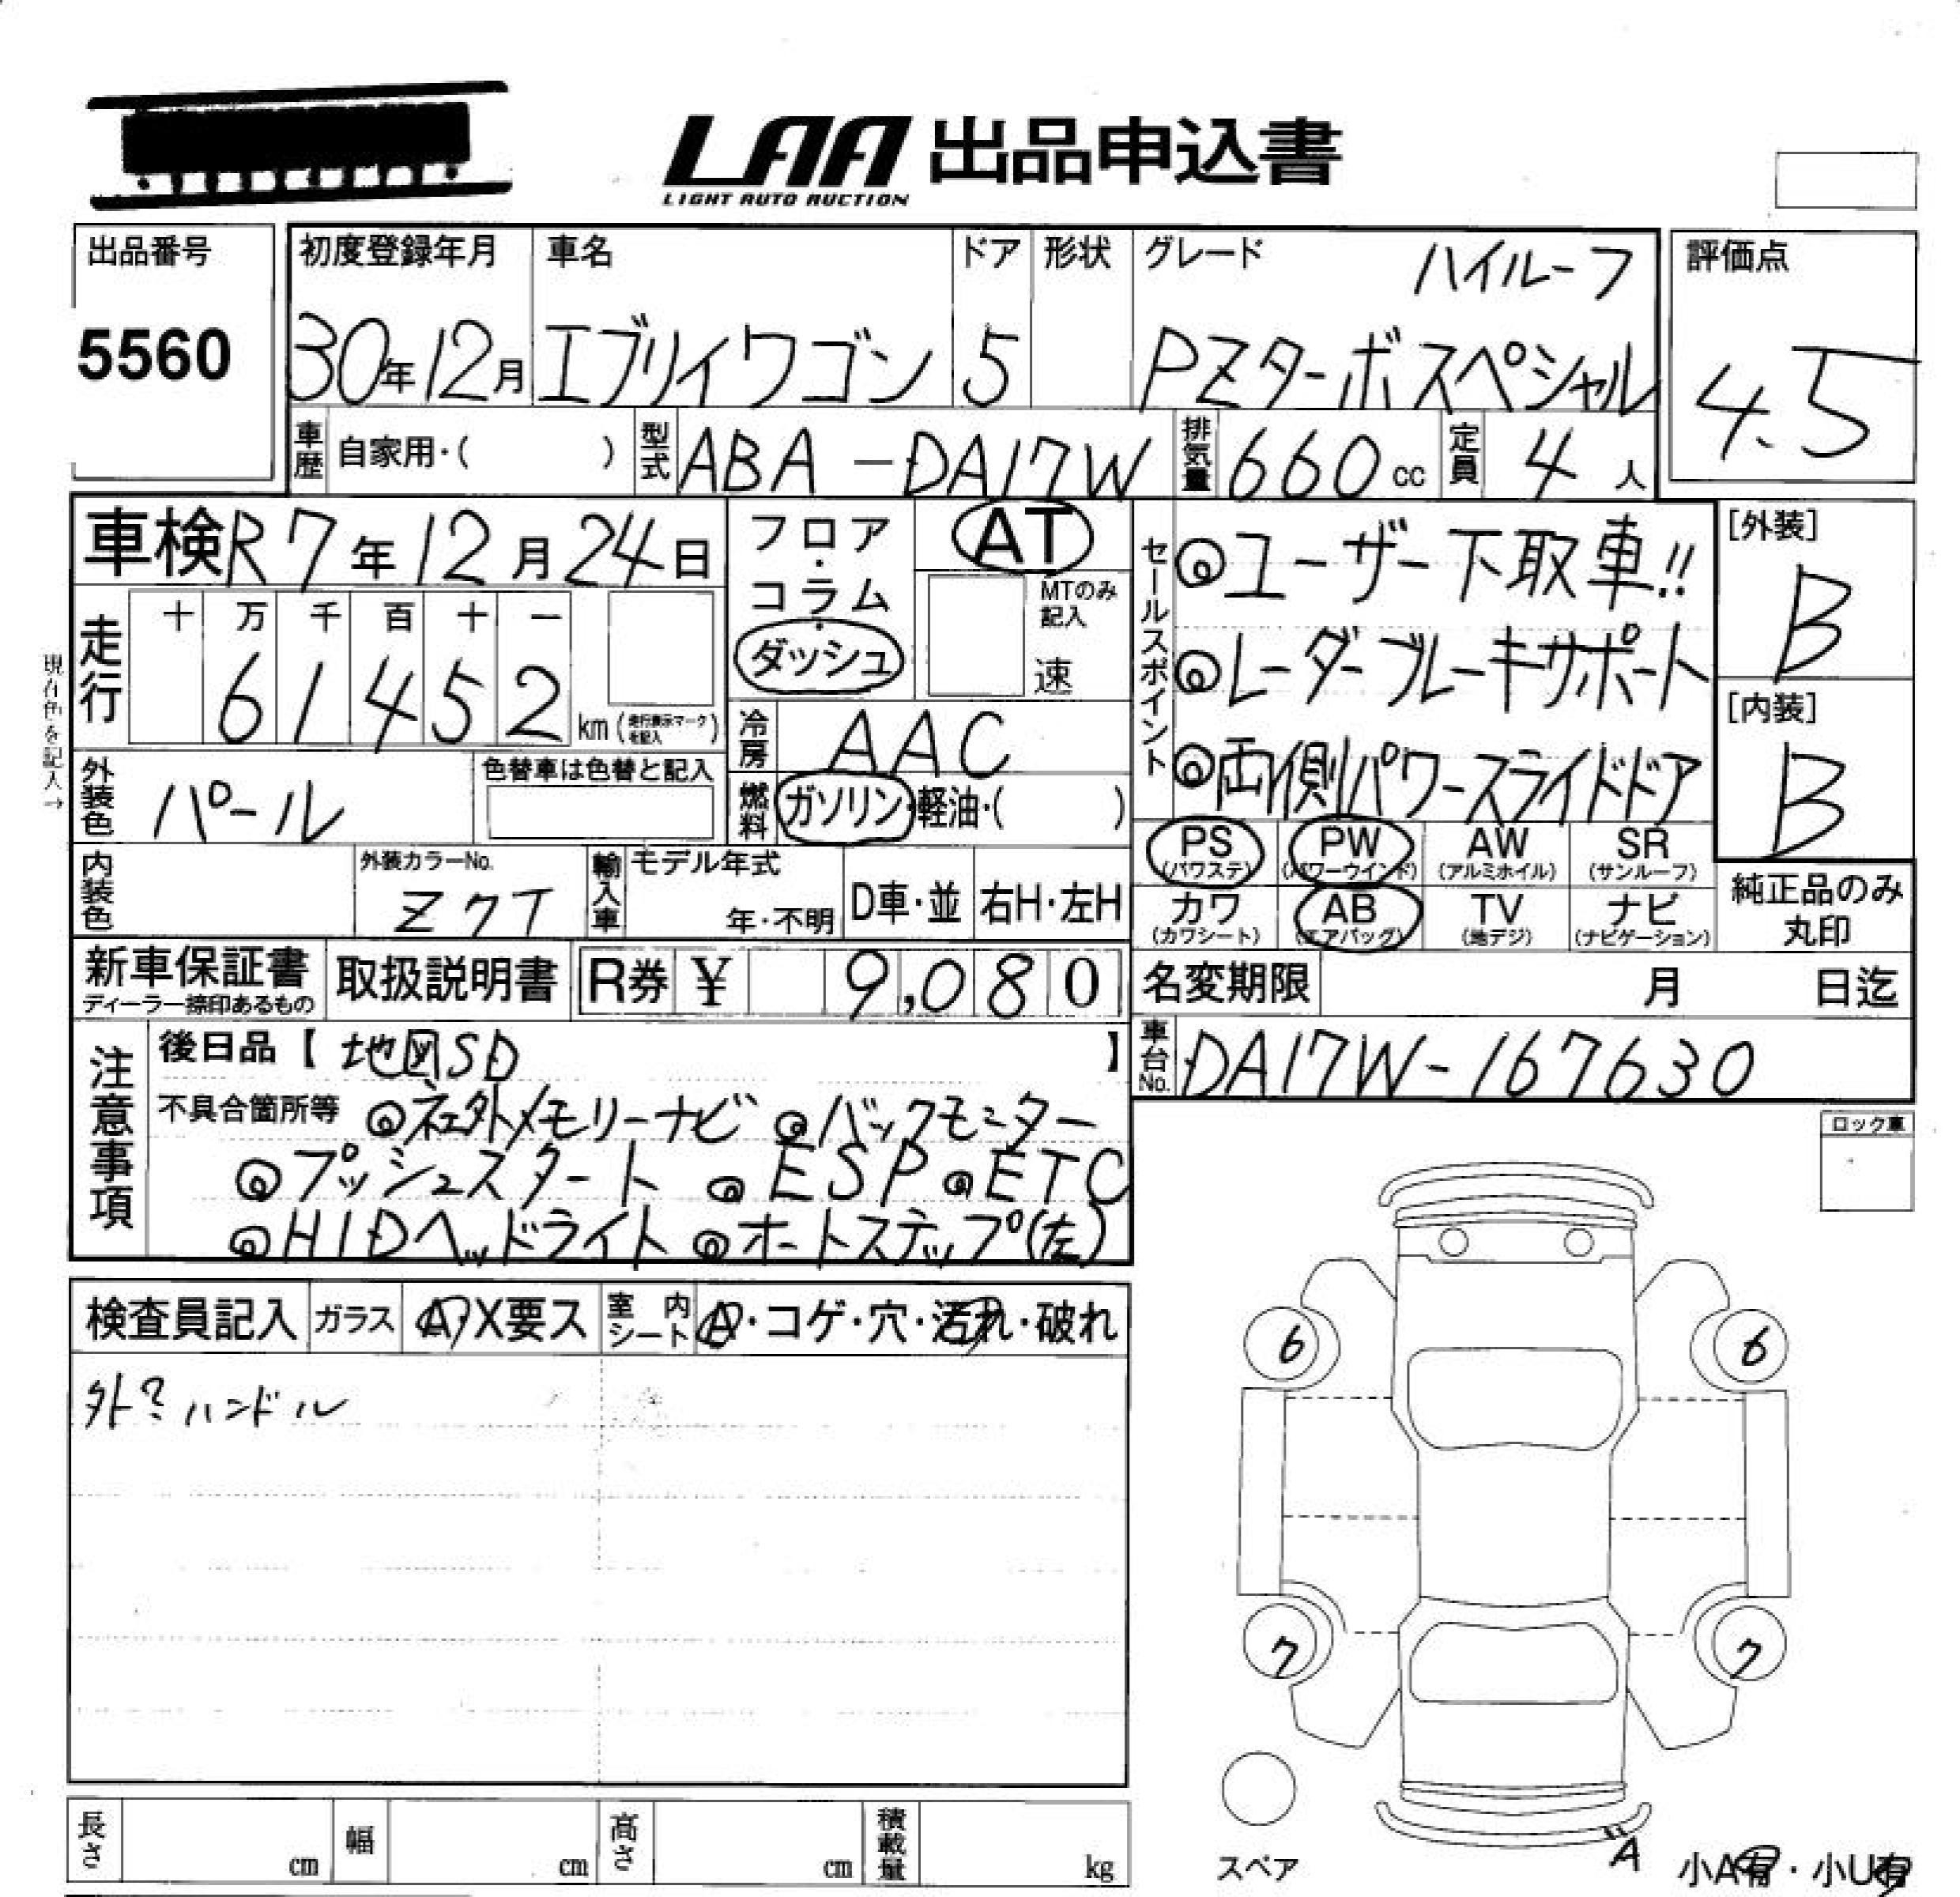 LAA 出品申込書
LIGHT AUTO AUCTION
出品番号
5560
初度登録年月
30年12月
車名
エブリイワゴン
ドア
5
形状
グレード
ハイルーフ
PZターボスペシャル
評価点
4.5
車歴 自家用・( )
型式 ABA-DA17W
排気量 660cc
定員 4人
車検 R7年12月24日
走行
十 万 千 百 十 一
6 1 4 5 2 km (走行表示マークを記入)
現在色を記入→
外装色 パール
色替車は色替と記入
内装色
外装カラーNo.
Z7T
輸入車
モデル年式
年・不明
D車・並
右H・左H
フロア・コラム・ダッシュ
AT
MTのみ記入
速
冷房 AAC
燃料 ガソリン・軽油・( )
セールスポイント
◎ユーザー下取車!!
◎レーダーブレーキサポート
◎両側パワースライドドア
[外装]
B
[内装]
B
PS (パワステ)
PW (パワーウインド)
AW (アルミホイル)
SR (サンルーフ)
カワ (カワシート)
AB (エアバッグ)
TV (地デジ)
ナビ (ナビゲーション)
純正品のみ
丸印
新車保証書
ディーラー捺印あるもの
取扱説明書
R券 ¥ 9,080
名変期限 月 日迄
車台No. DA17W-167630
注意事項
後日品【 地図SD 】
不具合箇所等 ◎社外メモリーナビ ◎バックモニター
◎プッシュスタート ◎ESP ◎ETC
◎HIDヘッドライト ◎オートステップ(左)
ロック車
検査員記入
ガラス
A・X要ス
室内シート
A・コゲ・穴・汚れ・破れ
外?ハンドル
6
6
7
7
スペア
A
小A有・小U有
長さ cm
幅 cm
高さ cm
積載量 kg